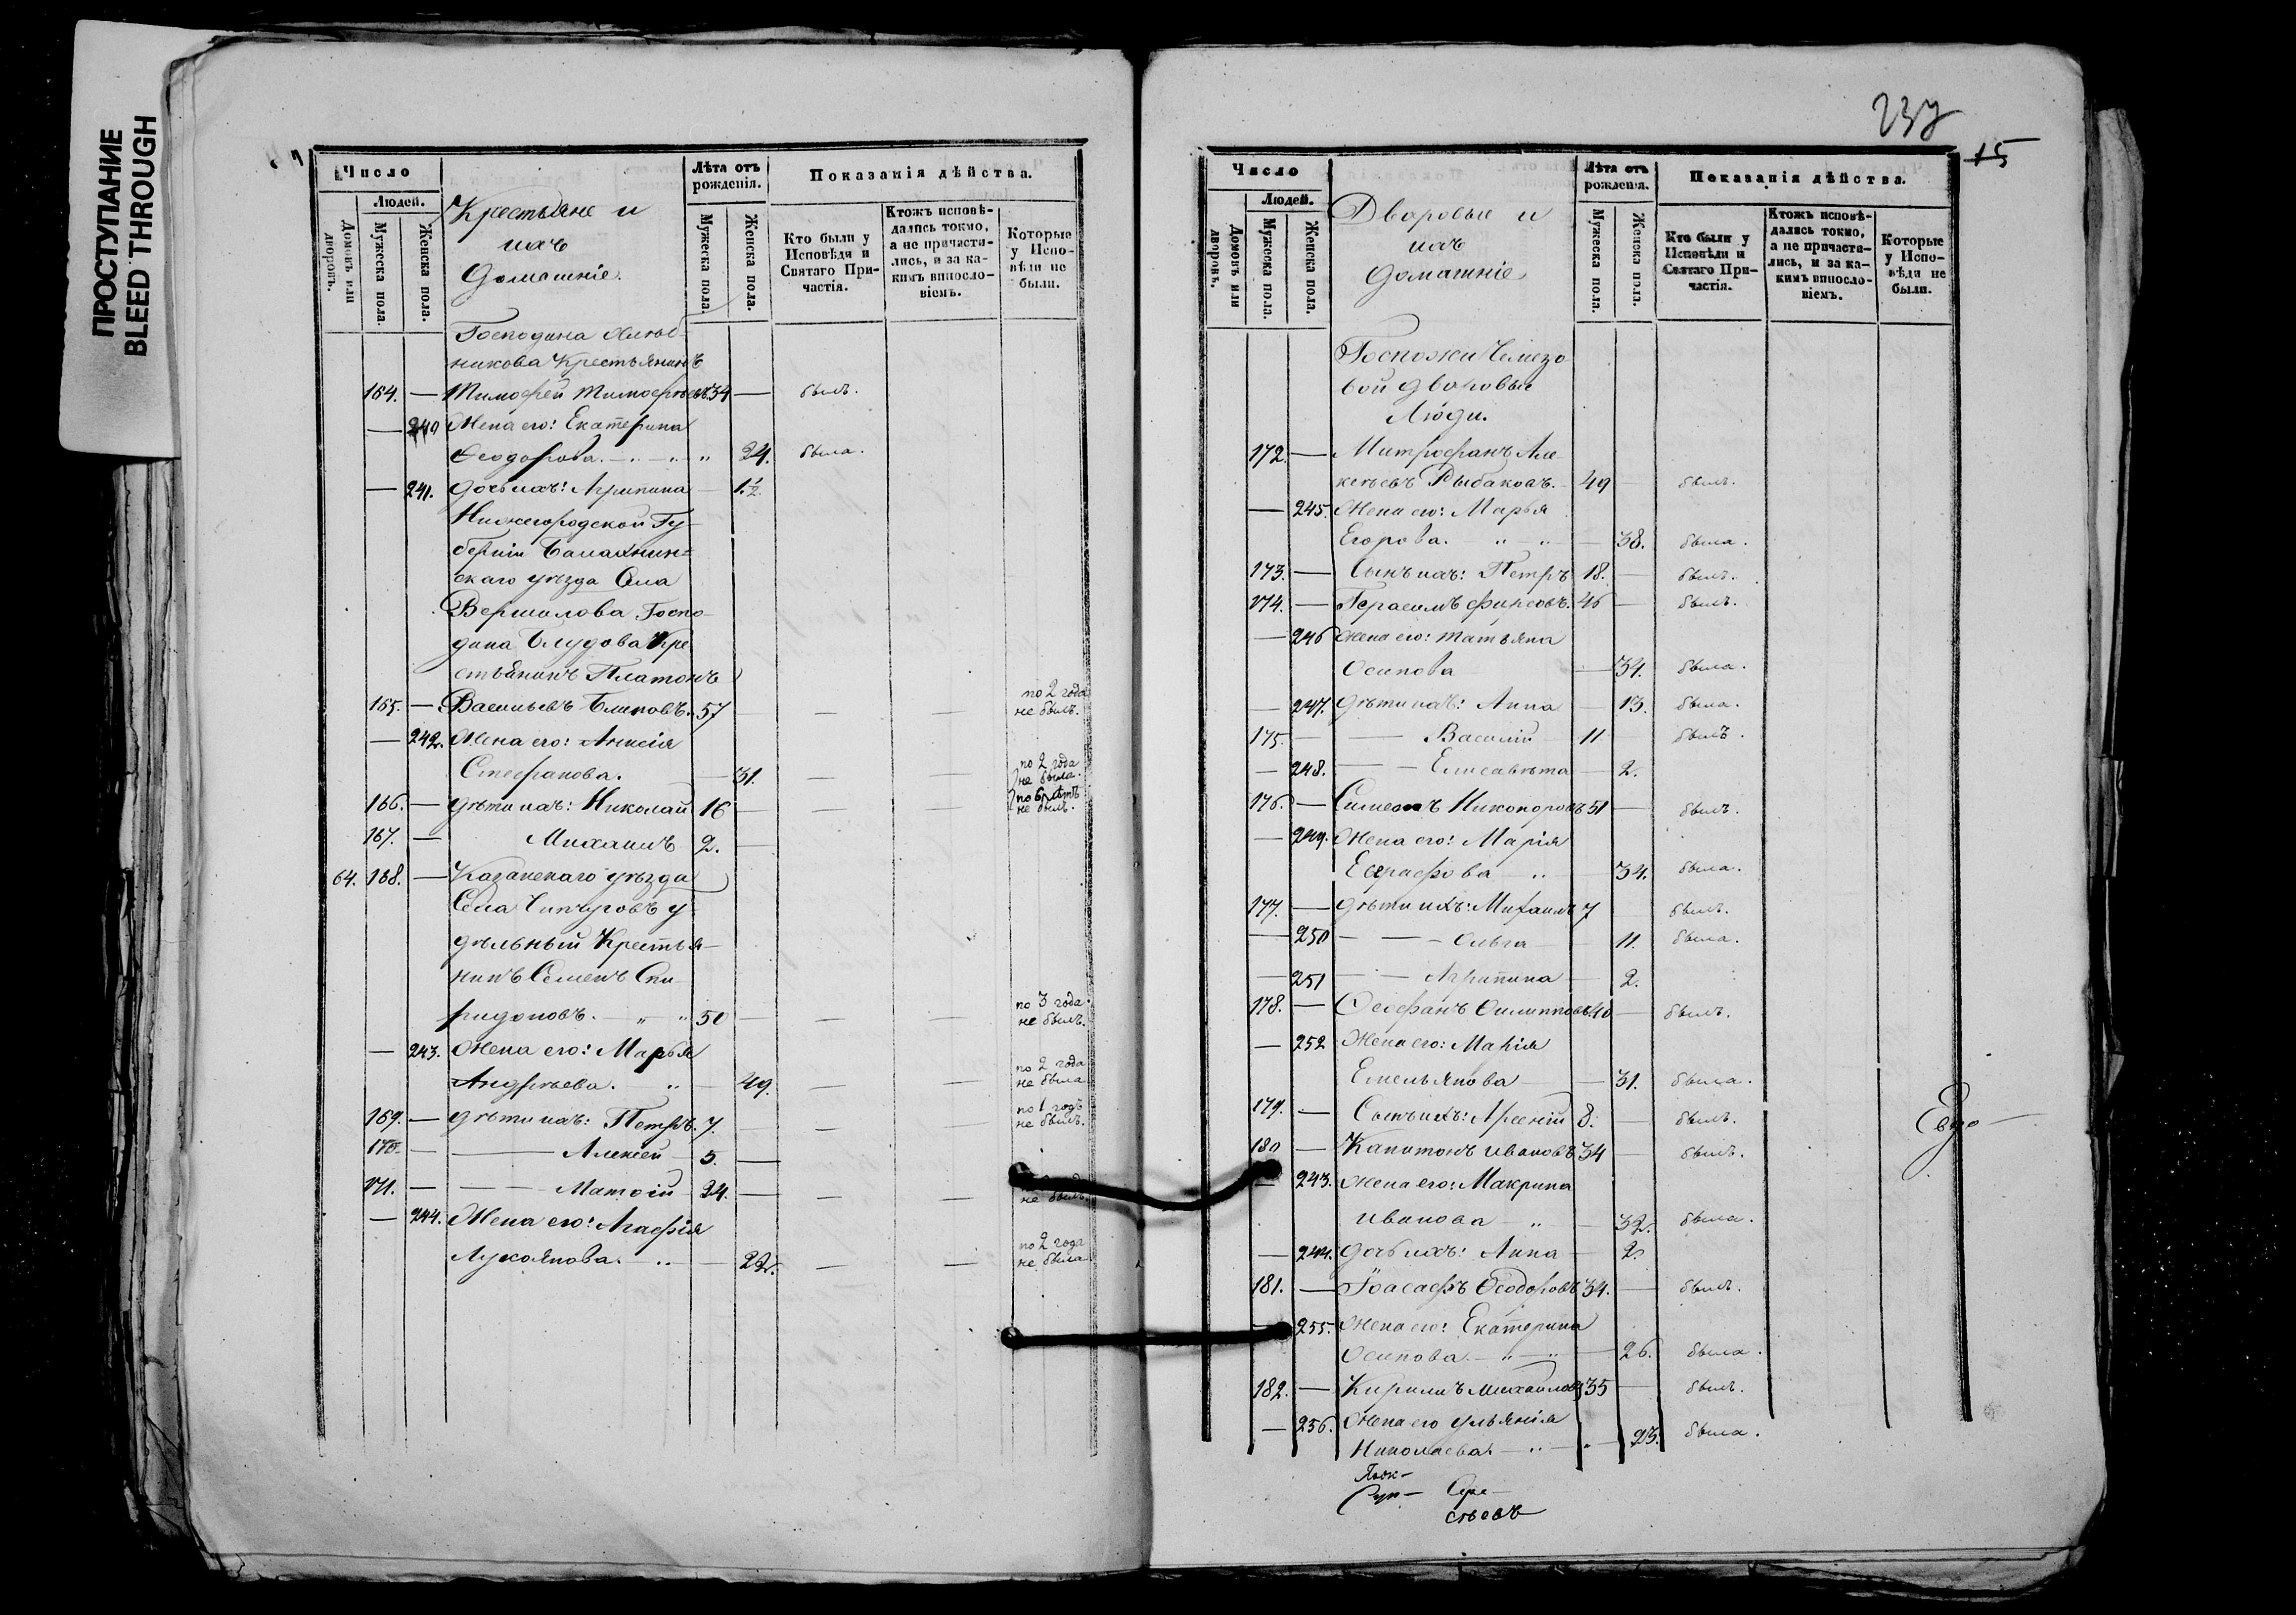 ПРОСТУПАНИЕ
BLEED THROUGH
Число
Лѣта отъ рожденія.
Показанія дѣйства.
Людей.
Домовъ или дворовъ.
Мужеска пола.
Женска пола.
Крестьяне и
ихъ
домашніе.
Мужеска пола.
Женска пола.
Кто были у Исповѣди и Святаго Причастія.
Ктожъ исповѣдались токмо, а не причастились, и за какимъ винословіемъ.
Которые у Исповѣди не были.
Господина
никова Крестьянинъ
164. — Тимофей Тимофеевъ. 34 — былъ.
— 240 Жена его: Екатерина
Феодорова. — " — " — " 24. была.
— 241. Дочь ихъ: Агрипина — 1½
Нижегородской Гу-
берніи Балахнин-
скаго уѣзда Села
Вершилова Госпо-
дина Блудова Кре
стьянинъ Платонъ
165. — Васильевъ Блиновъ. 57 — — — по 2 года не былъ.
— 242. Жена его: Анисія
Стефанова. — 31. — по 2 года не была.
166. — Дѣти ихъ: Николай 16 — — — по 6 лѣтъ не былъ.
167. — Михаилъ 2. —
64. 168. — Казанскаго уѣзда
Села у-
дѣльный Крестья-
нинъ Семенъ Спи-
ридоновъ. — " — " 50 — — — по 3 года не былъ.
— 243. Жена его: Марья
Андреева. — " — 49. — — по 2 года не была
169. — Дѣти ихъ: Петръ. 7. — — — по 1 годъ не былъ.
170. — — Алексей — 5. —
171. — — Матѳій — 24. — — — не былъ.
— 244. Жена его: Агафія
Лукоянова. — " — 22. — — по 2 года не была
237
15
Число
Лѣта отъ рожденія.
Показанія дѣйства.
Людей.
Домовъ или дворовъ.
Мужеска пола.
Женска пола.
Дворовые и
ихъ
домашніе
Мужеска пола.
Женска пола.
Кто были у Исповѣди и Святаго Причастія.
Ктожъ исповѣдались токмо, а не причастились, и за какимъ винословіемъ.
Которые у Исповѣди не были.
Госпожи Чемезо
вой дворовые
Люди.
172. — Митрофанъ Але-
ксѣевъ Рыбаковъ. — 49 — былъ.
— 245. Жена его: Марья
Егорова. — " — " — 38. была.
173. — Сынъ ихъ: Петръ 18. — былъ.
174. — Герасимъ Фирсовъ. 46 — былъ.
— 246 Жена его: Татьяна
Осипова — 34. была.
— 247. Дѣти ихъ: Анна — 13. была.
175. — — Василій — 11 былъ.
— 248. — — Елисавѣта — 2.
176. — Симеонъ Никоноровъ 51 — былъ.
— 249. Жена его: Марія
Евграфова — " — 34. была.
177. — Дѣти ихъ: Михаилъ 7 былъ.
— 250 — — Ольга — 11. была.
— 251 — — Агрипина — 2.
178. — Стефанъ Филипповъ. 40 — былъ.
— 252 Жена его: Марія
Емельянова — 31. была.
179. — Сынъ ихъ: Арсеній 8. — былъ.
180 — Капитонъ Ивановъ 34 — былъ.
— 243. Жена его: Макрина
Иванова — " — 32. была.
— 244. Дочь ихъ: Анна — 2.
181. — Іоасафъ Ѳеодоровъ 34. — былъ.
255. Жена его: Екатерина
Осипова. — " — " — 26. была.
182. — Кирилъ Михайловъ 35 — былъ.
— 256. Жена его Ульянія
Николаева. — " — " — 23. была.
Евдо-